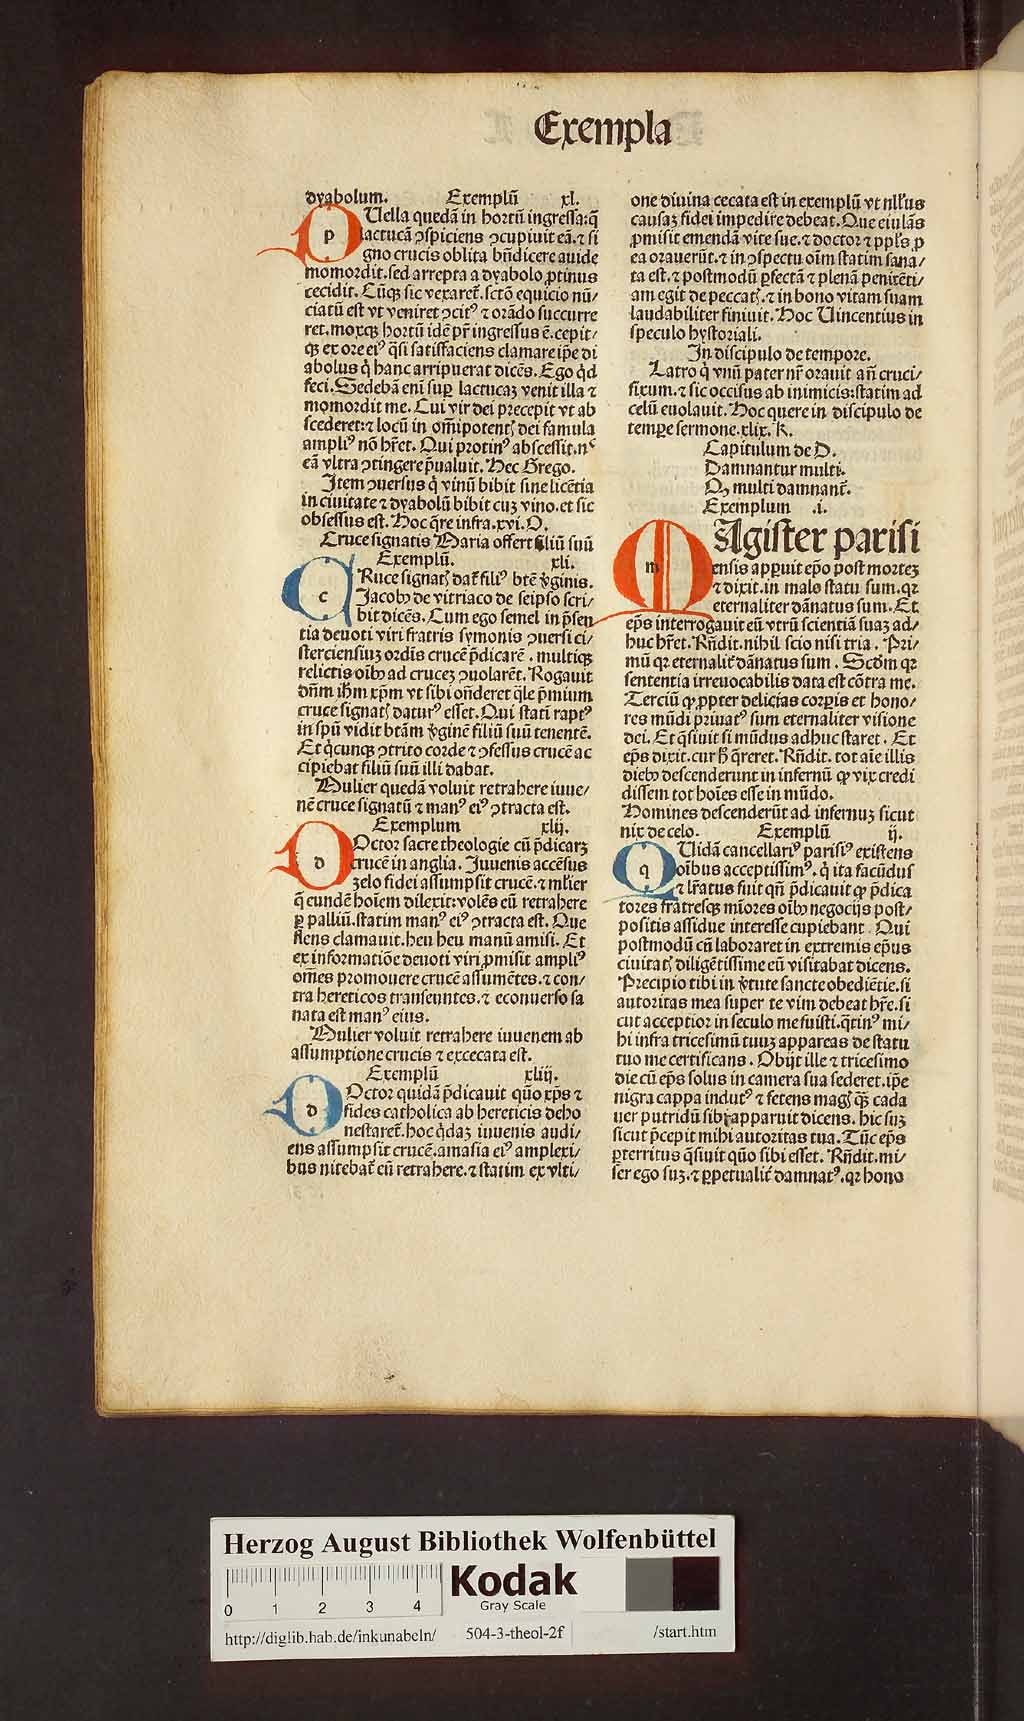 Exempla
dyabolum. Exemplū xl.
pUella quedā in hortū ingressa: q̄
lactucā ꝯspiciens ꝯcupiuit eā. ⁊ si
gno crucis oblita bn̄dicere auide
momordit. sed arrepta a dyabolo ꝓtinus
cecidit. Cūqꝫ sic vexaret̄. sctō equicio nū/
ciatū est vt veniret ꝯcitꝰ ⁊ orādo succurre
ret. moxqꝫ hortū idē pr̄ ingressus ē. cepit/
qꝫ ex ore eiꝰ q̄si satisfaciens clamare ip̄e di
abolus q̇ hanc arripuerat dicēs. Ego q̇d
feci. Sedebā eni suꝑ lactucaꝫ venit illa ⁊
momordit me. Cui vir dei precepit vt ab
scederet: ⁊ locū in om̄ipotentꝭ dei famula
ampliꝰ nō hr̄et. Qui protinꝰ abscessit. nc̄
eā vltra ꝯtingere p̄ualuit. Hec Grego.
Item ꝯuersus q̇ vinū bibit sine licētia
in ciuitate ⁊ dyabolū bibit cuꝫ vino. et sic
obsessus est. Hoc q̄re infra. xvi. O.
Cruce signatis Maria offert filiū suū
Exemplū. xli.
cRuce signatꝭ dat̄ filiꝰ btē v̄ginis.
Jacobꝰ de vitriaco de seipso scri/
bit dicēs. Cum ego semel in p̄sen
tia deuoti viri fratris symonis ꝯuersi ci/
sterciensiuꝫ ordis crucē p̄dicarē. multiqꝫ
relictis oībꝰ ad cruceꝫ ꝯuolarēt. Rogauit
dn̄m ih̄m xp̄m vt sibi on̄deret q̄le p̄mium
cruce signatꝭ daturꝰ esset. Qui statī raptꝰ
in spū vidit btām v̄ginē filiū suū tenentē.
Et q̇cunqꝫ ꝯtrito corde ⁊ ꝯfessus crucē ac
cipiebat filiū suū illi dabat.
Mulier quedā voluit retrahere iuue/
nē cruce signatū ⁊ manꝰ eiꝰ ꝯtracta est.
Exemplum xlij.
dOctor sacre theologie cū p̄dicarꝫ
crucē in anglia. Juuenis accēsus
zelo fidei assumpsit crucē. ⁊ mlier
q̄ eundē hoīem dilexit: volēs eū retrahere
ꝑ palliū. statim manꝰ eiꝰ ꝯtracta est. Que
flens clamauit. heu heu manū amisi. Et
ex informatiōe deuoti viri ꝓmisit ampliꝰ
om̄es promouere crucē assumētes. ⁊ con/
tra hereticos transeuntes. ⁊ econuerso sa
nata est manꝰ eius.
Mulier voluit retrahere iuuenem ab
assumptione crucis ⁊ excecata est.
Exemplū xliij.
dOctor quidā p̄dicauit quō xp̄s ⁊
fides catholica ab hereticis deho
nestaret̄. hoc q̇daꝫ iuuenis audi/
ens assumpsit crucē. amasia eiꝰ amplexi/
bus nitebat̄ eū retrahere. ⁊ statim ex vlti/
one diuina cecata est in exemplū vt nllꝰus
causaꝫ fidei impedire debeat. Que eiulās
ꝓmisit emendā vite sue. ⁊ doctor ⁊ pplꝰs ꝓ
ea orauerūt. ⁊ in ꝯspectu oīm statim sana/
ta est. ⁊ postmodū ꝑfectā ⁊ plenā penitēti/
am egit de peccatꝭ. ⁊ in bono vitam suam
laudabiliter finiuit. Hoc Uincentius in
speculo hystoriali.
In discipulo de tempore.
Latro q̇ vnū pater nr̄ orauit an̄ cruci/
fixum. ⁊ sic occisus ab inimicis: statim ad
celū euolauit. Hoc quere in discipulo de
tempe sermone. xlix. K.
Capitulum de D.
Damnantur multi.
Qꝫ multi damnant̄.
Exemplum .i.
mAgister parisi
ensis apparuit epō post morteꝫ
⁊ dixit. in malo statu sum. qꝛ
eternaliter dānatus sum. Et
ep̄s interrogauit eū vtrū scientiā suaꝫ ad/
huc hr̄et. Rn̄dit. nihil scio nisi tria. Pri/
mū qꝛ eternalit̄ dānatus sum. Scdm qꝛ
sententia irreuocabilis data est cōtra me.
Terciū ꝙ ꝓpter delicias corꝑis et hono/
res mūdi priuatꝰ sum eternaliter visione
dei. Et q̄siuit si mūdus adhuc staret. Et
ep̄s dixit. cur h̄ q̄reret. Rn̄dit. tot aīe illis
diebꝰ descenderunt in infernū ꝙ vix credi
dissem tot hoīes esse in mūdo.
Homines descenderūt ad infernuꝫ sicut
nix de celo. Exemplū ij.
qUidā cancellariꝰ parisiꝰ existens
oībus acceptissimꝰ. q̇ ita facūdus
⁊ lr̄atus fuit qn̄ p̄dicauit ꝙ p̄dica
tores fratresqꝫ mīores oībꝰ negocijs post/
positis assidue interesse cupiebant. Qui
postmodū cū laboraret in extremis ep̄us
ciuitatꝭ diligētissime eū visitabat dicens.
Precipio tibi in v̄tute sancte obediētie. si
autoritas mea super te vim debeat hr̄e. si
cut acceptior in seculo me fuisti. q̄tinꝰ mi/
hi infra tricesimū tuuꝫ appareas de statu
tuo me certificans. Obijt ille ⁊ tricesimo
die cū ep̄s solus in camera sua sederet. ip̄e
nigra cappa indutꝰ ⁊ fetens magꝭ q̄ꝫ cada
uer putridū sibi apparuit dicens. hic suꝫ
sicut p̄cepit mihi autoritas tua. Tūc ep̄s
ꝑterritus q̄siuit quō sibi esset. Rn̄dit. mi/
ser ego suꝫ. ⁊ ꝑpetualit̄ damnatꝰ. qꝛ hono
Herzog August Bibliothek Wolfenbüttel
0 1 2 3 4
Kodak
Gray Scale
http://diglib.hab.de/inkunabeln/ 504-3-theol-2f /start.htm